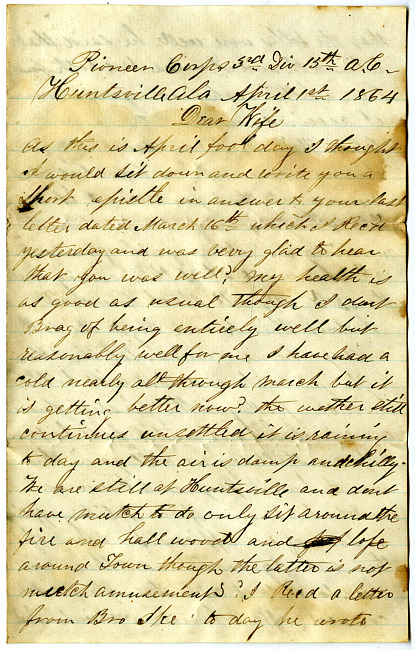 Pioneer Corps 3rd Div 15th A.C.
Huntsville Ala April 1st 1864
Dear Wife
As this is April fool day I thought
I would sit down and write you a
short epistle in answer to your last
letter dated March 16th which I Recd
yesterday and was very glad to hear
that you was well? my health is
as good as usual though I dont
Brag of being entirely well but
reasonably well for me I have had a
cold nearly all through march but it
is getting better now? the wether still
continues unsettled it is raining
to day and the air is damp and chilly-
We are still at Huntsville and dont
have mutch to do only sit around the
fire and hall wood and lofe
around Town though the latter is not
mutch amusement? I Recd a letter
from Bro Ike to day he wrote